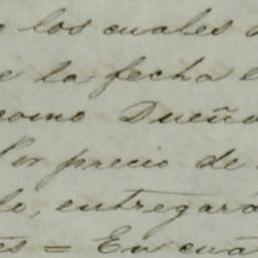 los cuales
la fecha
como Dueño
Por precio de
lo, entregará
= En cua